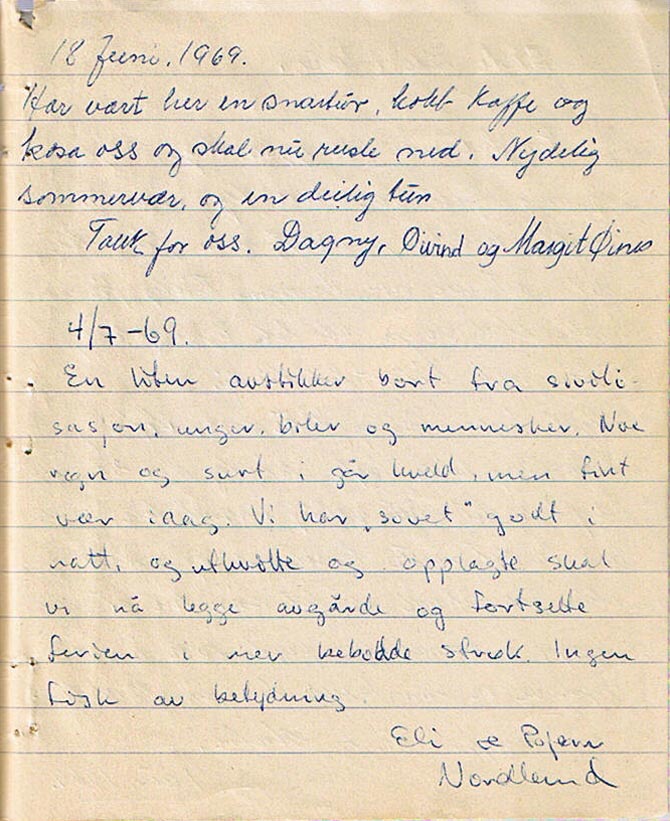 18 Juni. 1969.
Har vært her en snartur, kokt kaffe og
kosa oss og skal nu rusle ned. Nydelig
sommervær, og en deilig tur
Takk for oss. Dagny, Øivind og Margit Øines
4/7 -69.
En liten avstikker bort fra sivili-
sasjon, unger, biler og mennesker. Noe
regn og surt i går kveld, men fint
vær idag. Vi har „sovet" godt i
natt, og uthvilte og opplagte skal
vi nå legge avgårde og fortsette
ferien i mer bebodde strøk. Ingen
fisk av betydning.
Eli
Nordlund